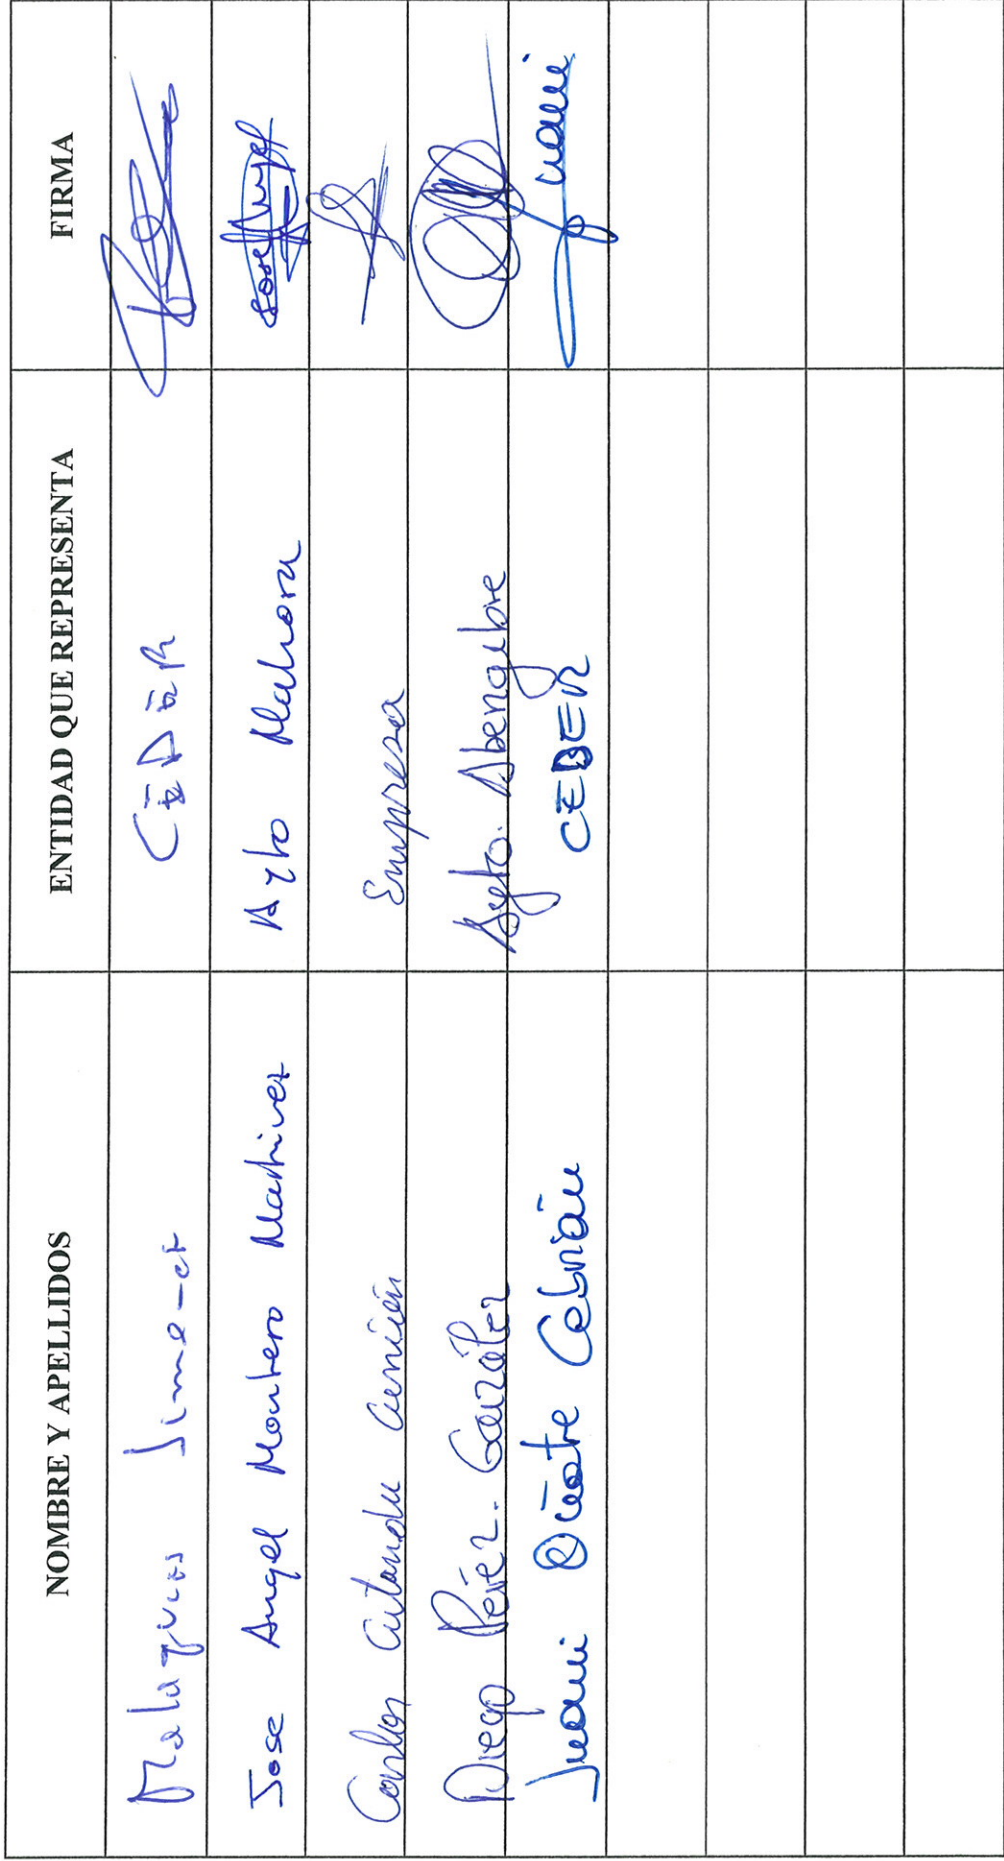 NOMBRE Y APELLIDOS ENTIDAD QUE REPRESENTA FIRMA
Malaquias Jimenez CEDER
Jose Angel Montero Martinez Ayto Mahora Jose Angel
Carlos Atanda Empresa
Diego Pérez González Ayto. Abengibre
Juani Oñate Cebrián CEDER Juani